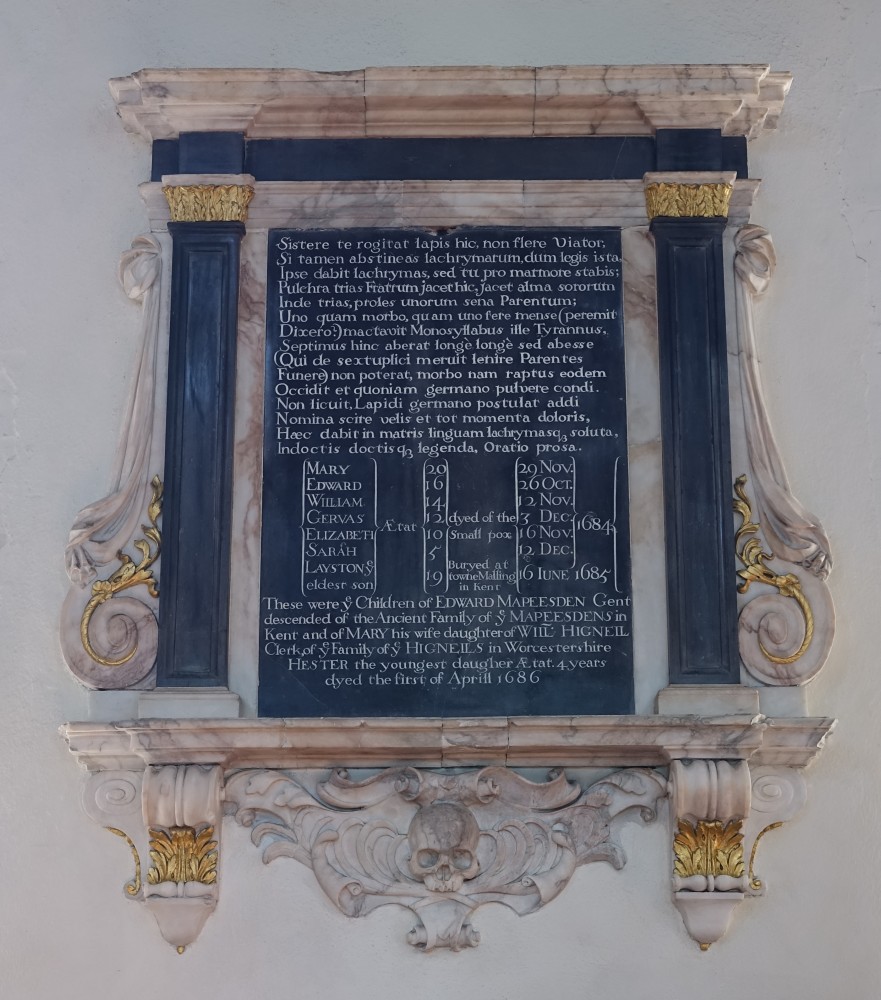 Sistere te rogitat lapis hic, non flere Viator,
Si tamen abstineas lachrymarum, dum legis ista,
Ipse dabit lachrymas, sed tu pro marmore stabis;
Pulchra trias Fratrum jacet hic, jacet alma sororum
Inde trias, proles unorum sena Parentum;
Uno quam morbo, quam uno fere mense (peremit
Dixero?) mactavit Monosyllabus ille Tyrannus,
Septimus hinc aberat longè longè sed abesse
(Qui de sextuplici meruit lenire Parentes
Funere) non poterat, morbo nam raptus eodem
Occidit et quoniam germano pulvere condi.
Non licuit, Lapidi germano postulat addi
Nomina scire velis et tot momenta doloris,
Hæc dabit in matris linguam lachrymasqꝫ soluta,
Indoctis doctisqꝫ legenda, Oratio prosa.
MARY 20 29 Nov.
EDWARD 16 26 Oct.
WILLIAM 14 12 Nov.
GERVAS Ætat 12 dyed of the 3 Dec. 1684
ELIZABETH 10 Small pox 16 Nov.
SARAH 5 12 Dec.
LAYSTON yͤ Buryed at
eldest son 19 towne Malling 16 IUNE 1685
in Kent
These were yͤ Children of EDWARD MAPEESDEN Gent
descended of the Ancient Family of yͤ MAPEESDENS in
Kent and of MARY his wife daughter of WILL: HIGNELL
Clerk, of yͤ Family of yͤ HIGNELLS in Worcestershire
HESTER the youngest daugher Ætat. 4 years
dyed the first of Aprill 1686